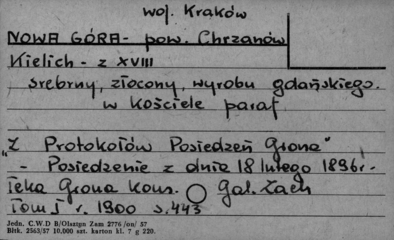 woj. Kraków
NOWA GÓRA - pow. Chrzanów
Kielich - z XVIII
srebrny, złocony, wyrobu gdańskiego.
w kościele paraf
"Z Protokołów Posiedzeń Grona"
- Posiedzenie z dnia 18 lutego 1896 r.
Teka Grona Kons. Gal. Zach
Tom I r. 1900 s. 443
Jedn. C.W.D B/Olsztyn Zam 2776/on/ 57
Bltk. 2563/57 10.000 szt. karton kl. 7 g 220.